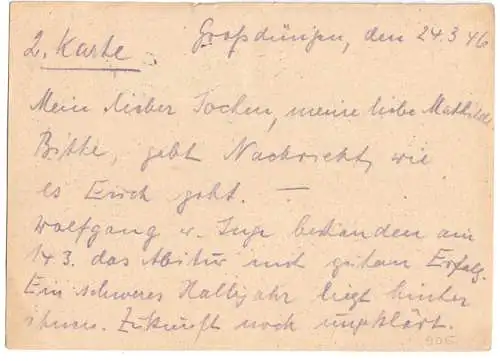 Großdüngen, den 24.3.46
2. Karte
Mein lieber Jochen, meine liebe Mathilde
Bitte, gebt Nachricht, wie
es Euch geht. —
Wolfgang u. Inge bestanden am
14.3. das Abitur mit gutem Erfolg.
Ein schweres Halbjahr liegt hinter
ihnen. Zukunft noch ungeklärt.